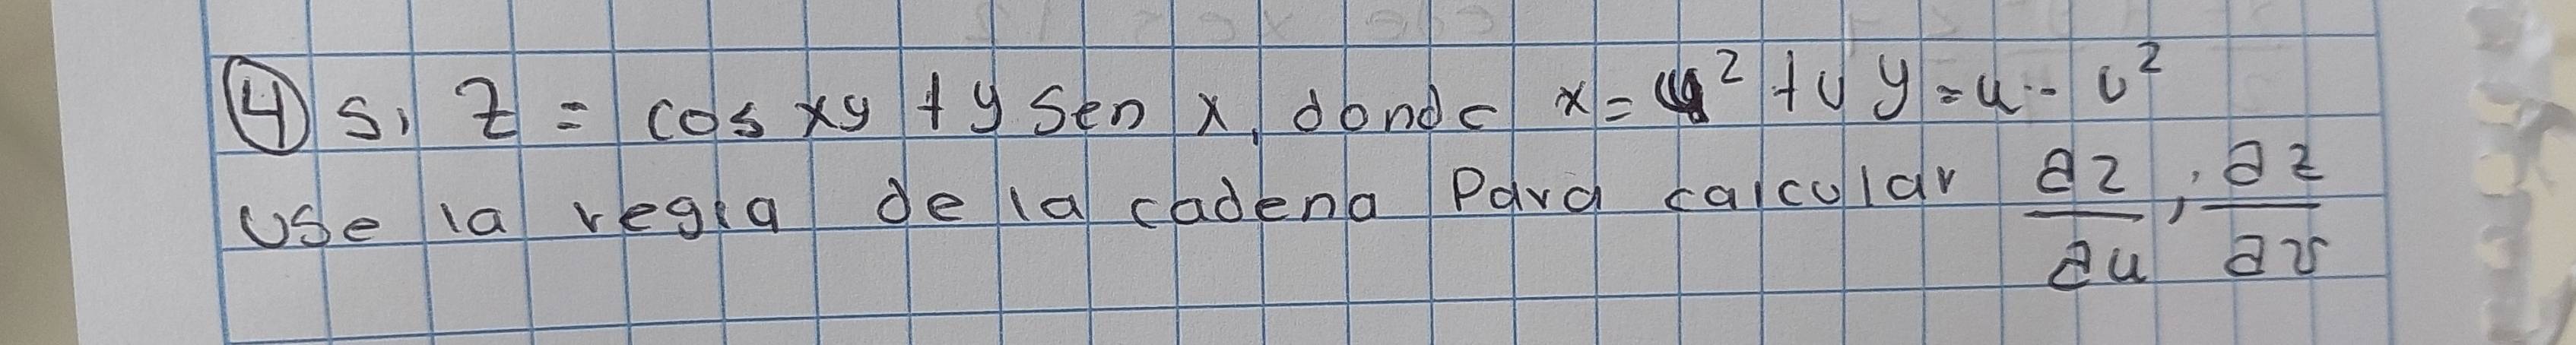 ④ Si z = cos xy + y sen x, donde x = u² + v y = u - v²
Use la regla de la cadena Para calcular ∂z/∂u, ∂z/∂v